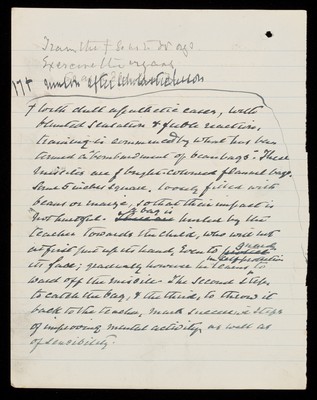 Train the
Exercise the organs
174
lesson
† With dull apathetic cases, with
blunted sensation & feeble reaction,
training is commenced by what has been
termed a "bombardment of beanbags": These
missiles are of bright-coloured flannel bags,
some 6 inches square, loosely filled with
beans or maize, so that their impact is
not hurtful. The bag is hurled by the
teacher towards the child, who will not
at first put up the hand, even to guard
in self protection
its face; gradually however he learns to
ward off the missile. The second step is
to catch the bag, & the third, to throw it
back to the teacher, mark successive steps
of improving mental activity, as well as
of sensibility.